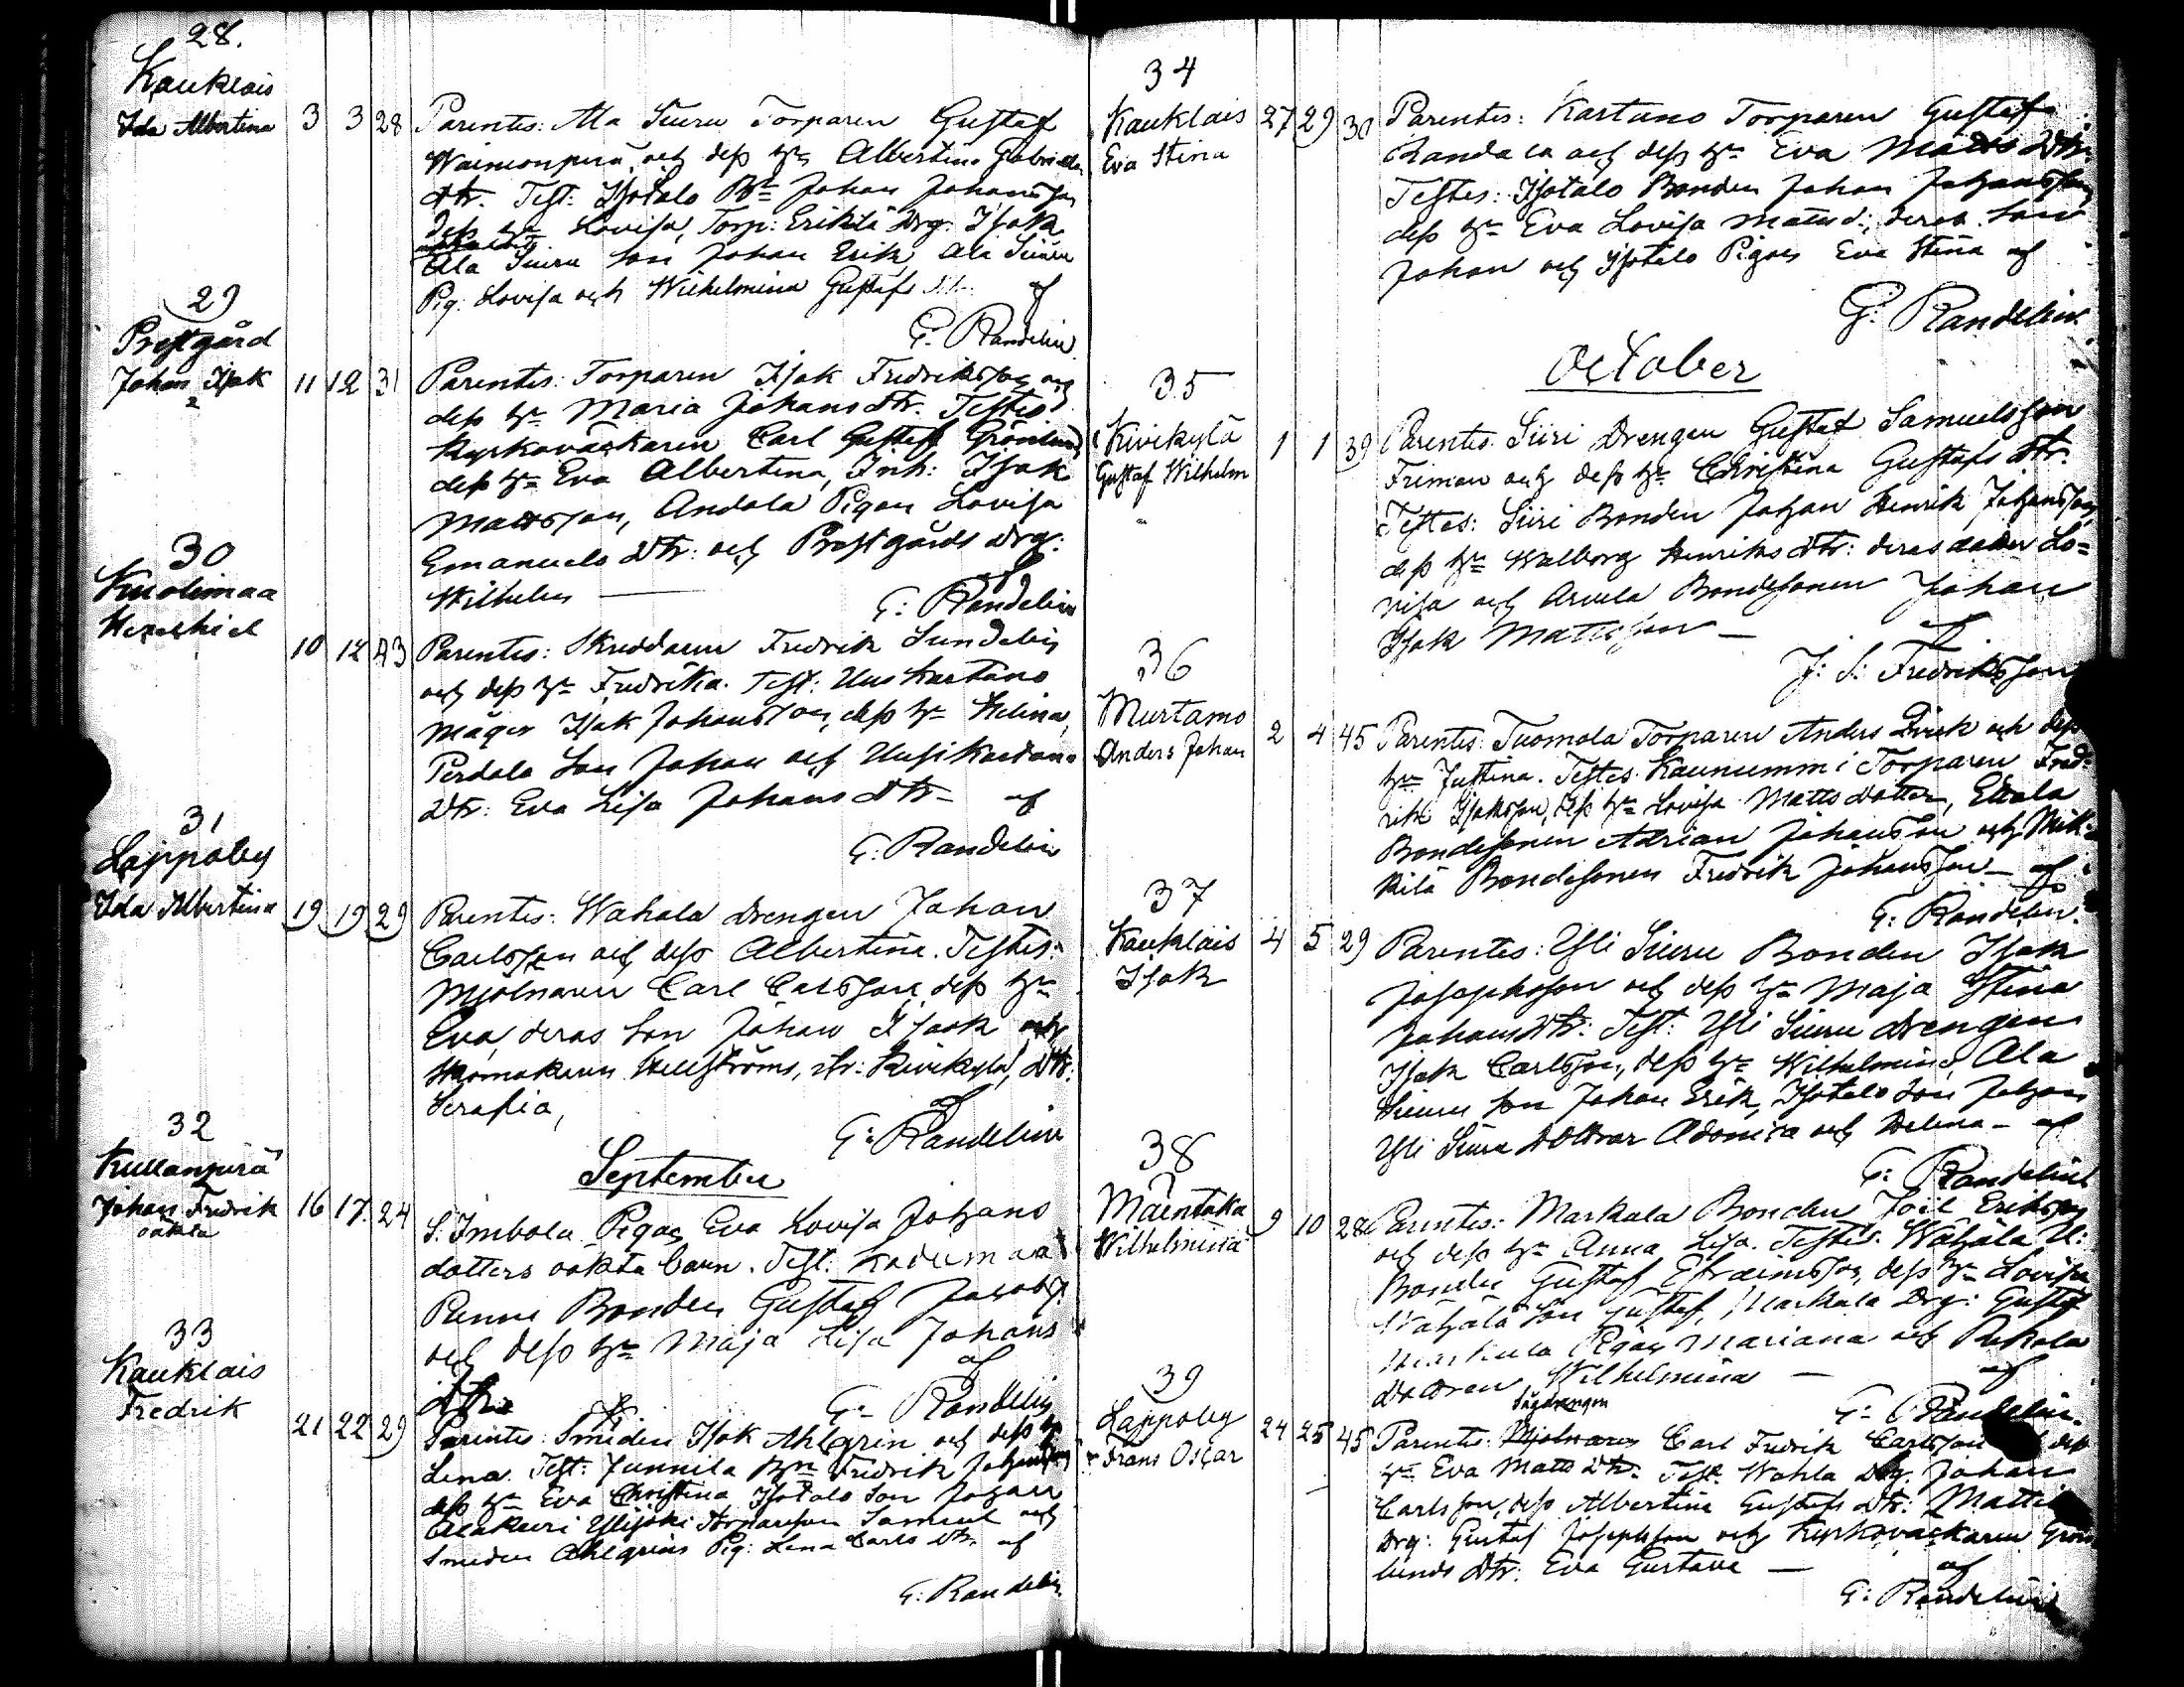 28.
Kauklais
Ida Albertina 3 3 28 Parentes: Ala Siuru Torparen Gustaf
Wainionperä och dess h:u Albertina Gabriels
dtr. Test: Isotalo B:n Johan Johansson
dess h:u Lovisa, Torp: Erikilä Drg: Isak
Ala Siuru Son Johan Erik, Ala Siuru
Pig: Lovisa och Wilhelmina Gustafs dtr. af
G. Randelin
29
Prestgård
Johan Isak 11 12 31 Parentes: Torparen Isak Fredriksson och
dess h:u Maria Johans dtr. Testes
Kyrkoväcktaren Carl Gustaf Grönlund
dess h:u Eva Albertina, Inh: Isak
Mattsson, Andola Pigan Lovisa
Emanuels dtr: och Prestgårds drg:
Wilhelm — af
G: Randelin
30
Kuolimaa
Hezechiel 10 12 43 Parentes: Skreddaren Fredrik Sundelin
och dess h:u Fredrika. Test: Uusikartano
Mågen Isak Johansson, dess h:u Helina,
Perdala Son Johan och Uusikartano
dtr: Eva Lisa Johans dtr – af
G: Randelin
31
Lappoby
Ida Albertina 19 19 29 Parentes: Wahala drengen Johan
Carlsson och dess Albertina. Testes:
Mjolnaren Carl Carlsson, dess h:u
Eva, deras Son Johan Isaak och
Skomakaren Hellströms, fr: Kivikylä, dtr:
Serafia, af
G: Randelin
September
32
Kullanperä
Johan Fredrik 16 17. 24 S. Imbola Pigan Eva Lovisa Johans
oäkta
dotters oäkta barn. Test: Kodiumaa
Penna Bonden Gustaf Jacobs:
och dess h:u Maja Lisa Johans
dtr: af
G: Randelin
33
Kauklais
Fredrik 21 22 29 Parentes: Smiden Isak Ahlgrén och dess h:u
Lena. Test: Junnila B:n Fredrik Johansson
dess h:u Eva Christina Isotalo Son Johan
Alakeeri Ylisjoki Torparson Samuel och
Smeden Ahlgréns Pig: Lena Carls dtr. af
G: Randelin
34
Kauklais 27 29 30 Parentes: Kartano Torparen Gustaf
Eva Stina
Randala och dess h:u Eva Matts dtr.
Testes: Isotalo Bonden Johan Johansson
dess h:u Eva Lovisa Matts d:, deras Son
Johan och Isotalo Pigan Eva Stina af
G: Randelin.
October
35
Kivikylä 1 1 39 Parentes: Siiri Drengen Gustaf Samuelsson
Gustaf Wilhelm
Friman och dess h:u Christina Gustafs dtr.
Testes: Siiri Bonden Johan Henrik Johansson,
dess h:u Walborg Henriks dtr: deras dotter Lo=
visa och Arvela Bondesonen Johan
Isak Mattsson — af
J: S: Fredriksson
36
Murtamo
Anders Johan 2 4 45 Parentes: Tuomola Torparen Anders Qvick och dess
h:u Justina. Testes: Kaunummi Torparen Fred=
rik Isaksson, dess h:u Lovisa Matts dotter, Eskola
Bondesonen Adrian Johansson och Mik=
kilä Bondesonen Fredrik Johansson — af
G: Randelin.
37
Kauklais 4 5 29 Parentes: Yli Siuru Bonden Isak
Isak
Josephsson och dess h:u Maja Stina
Johans dtr: Test: Yli Siuru drengen
Isak Carlsson, dess h:u Wilhelmina, Ala
Siuru Son Johan Erik, Isotalo Son Johan
Yli Siuru döttrar Adomira och Helena – af
G: Randelin
38
Mäentaka
Wilhelmina 9 10 28 Parentes: Markula Bonden Joil Eriksson
och dess h:u Anna Lisa. Testes: Wähälä U:
Bonden Gustaf Efraimsson, dess h:u Lovisa
Wähälä Son Gustaf, Markula Drg: Gustaf
Markula Pigan Mariana och Pukola
dottren Wilhelmina — af
G: Randelin.
39
Lappoby 24 25 45 Parentes: Mjolnaren Sågdrengen Carl Fredrik Carlsson dess
Frans Oscar
h:u Eva Matts dtr. Test. Wahla drg. Johan
Carlsson, dess Albertina Gustafs dtr: Mattila
Drg: Gustaf Josephsson och Kyrkoväcktaren Grön
lunds dtr: Eva Gustava — af
G: Randelin